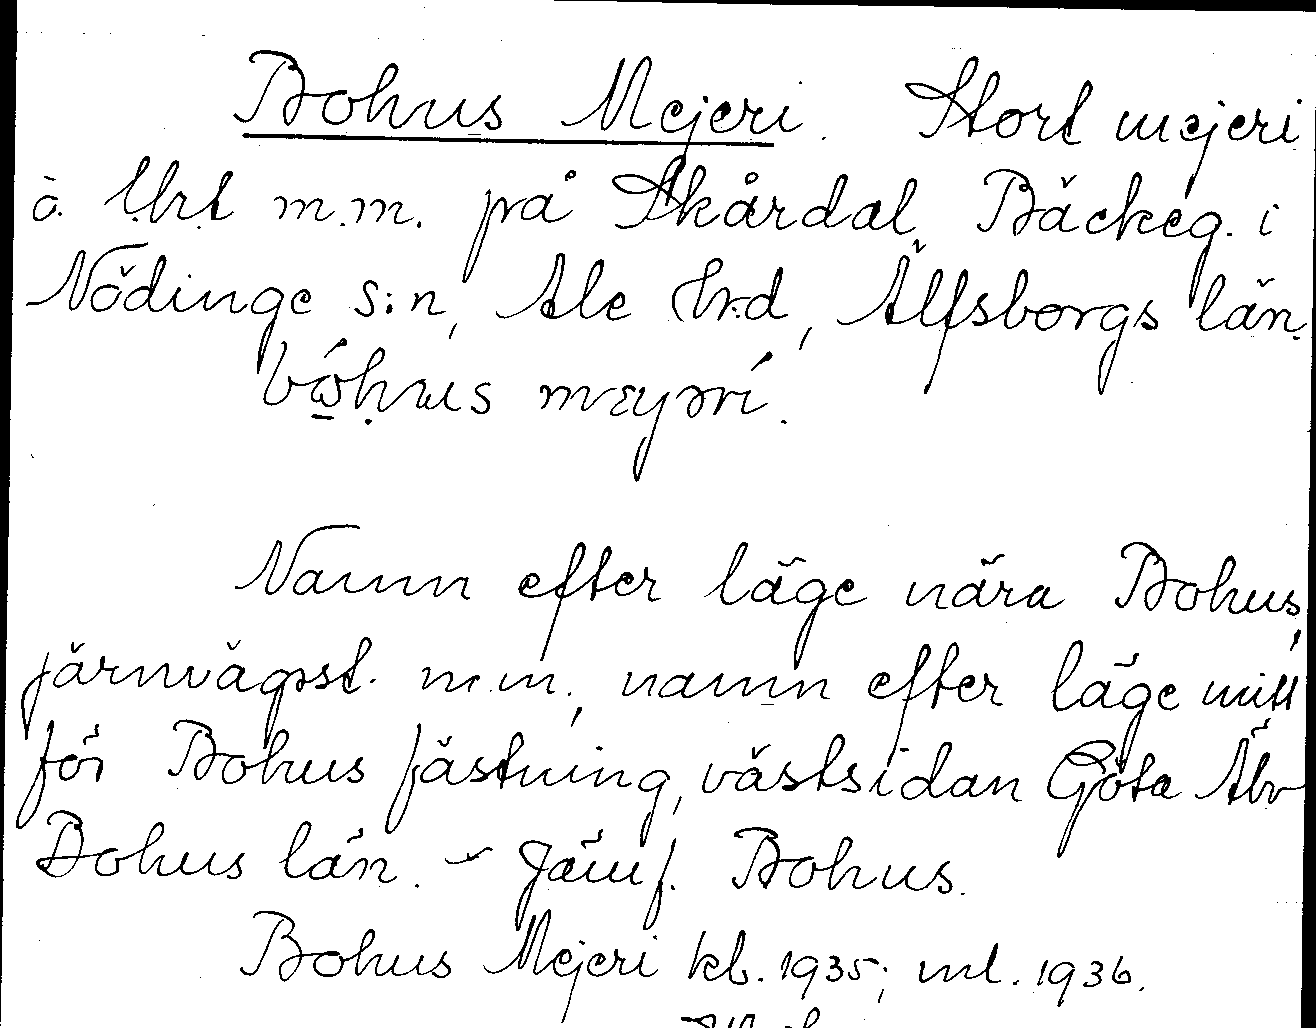 Bohus Mejeri. Stort mejeri
å. l:hrt m.m. på Skårdal, Bäckeg. i
Nödinge s:n, Ale hrd, Älfsborgs län.
Namn efter läge nära Bohus,
järnvägsst. m.m., namn efter läge mitt
för Bohus fästning, västsidan Göta Älv
Bohus län. - Jämf. Bohus.
Bohus Mejeri kb. 1935; ml. 1936.